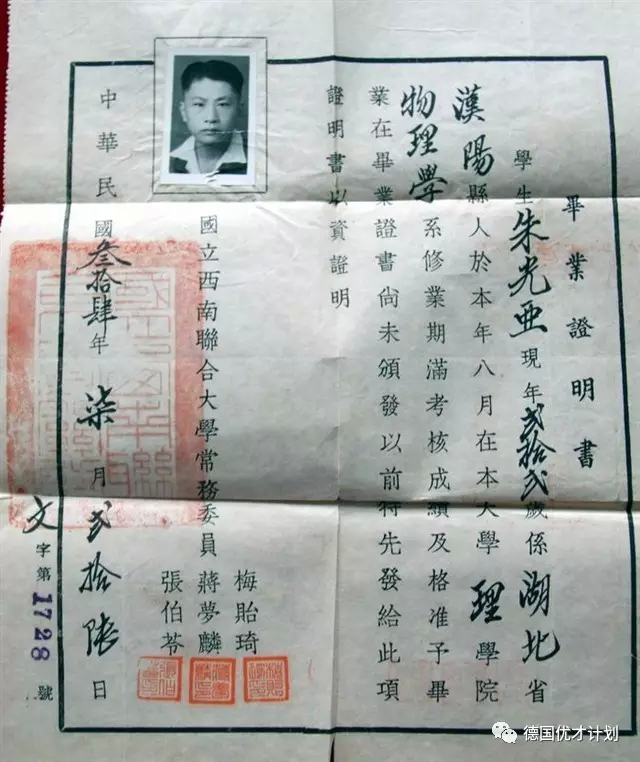 畢業證明書
學生朱光亞現年貳拾貳歲係湖北省
漢陽縣人於本年八月在本大學理學院
物理學系修業期滿考核成績及格准予畢
業在畢業證書尚未頒發以前特先發給此項
證明書以資證明
國立西南聯合大學常務委員
梅貽琦
蔣夢麟
張伯苓
中華民國叁拾肆年柒月貳拾陸日
文字第1728號
德国优才计划